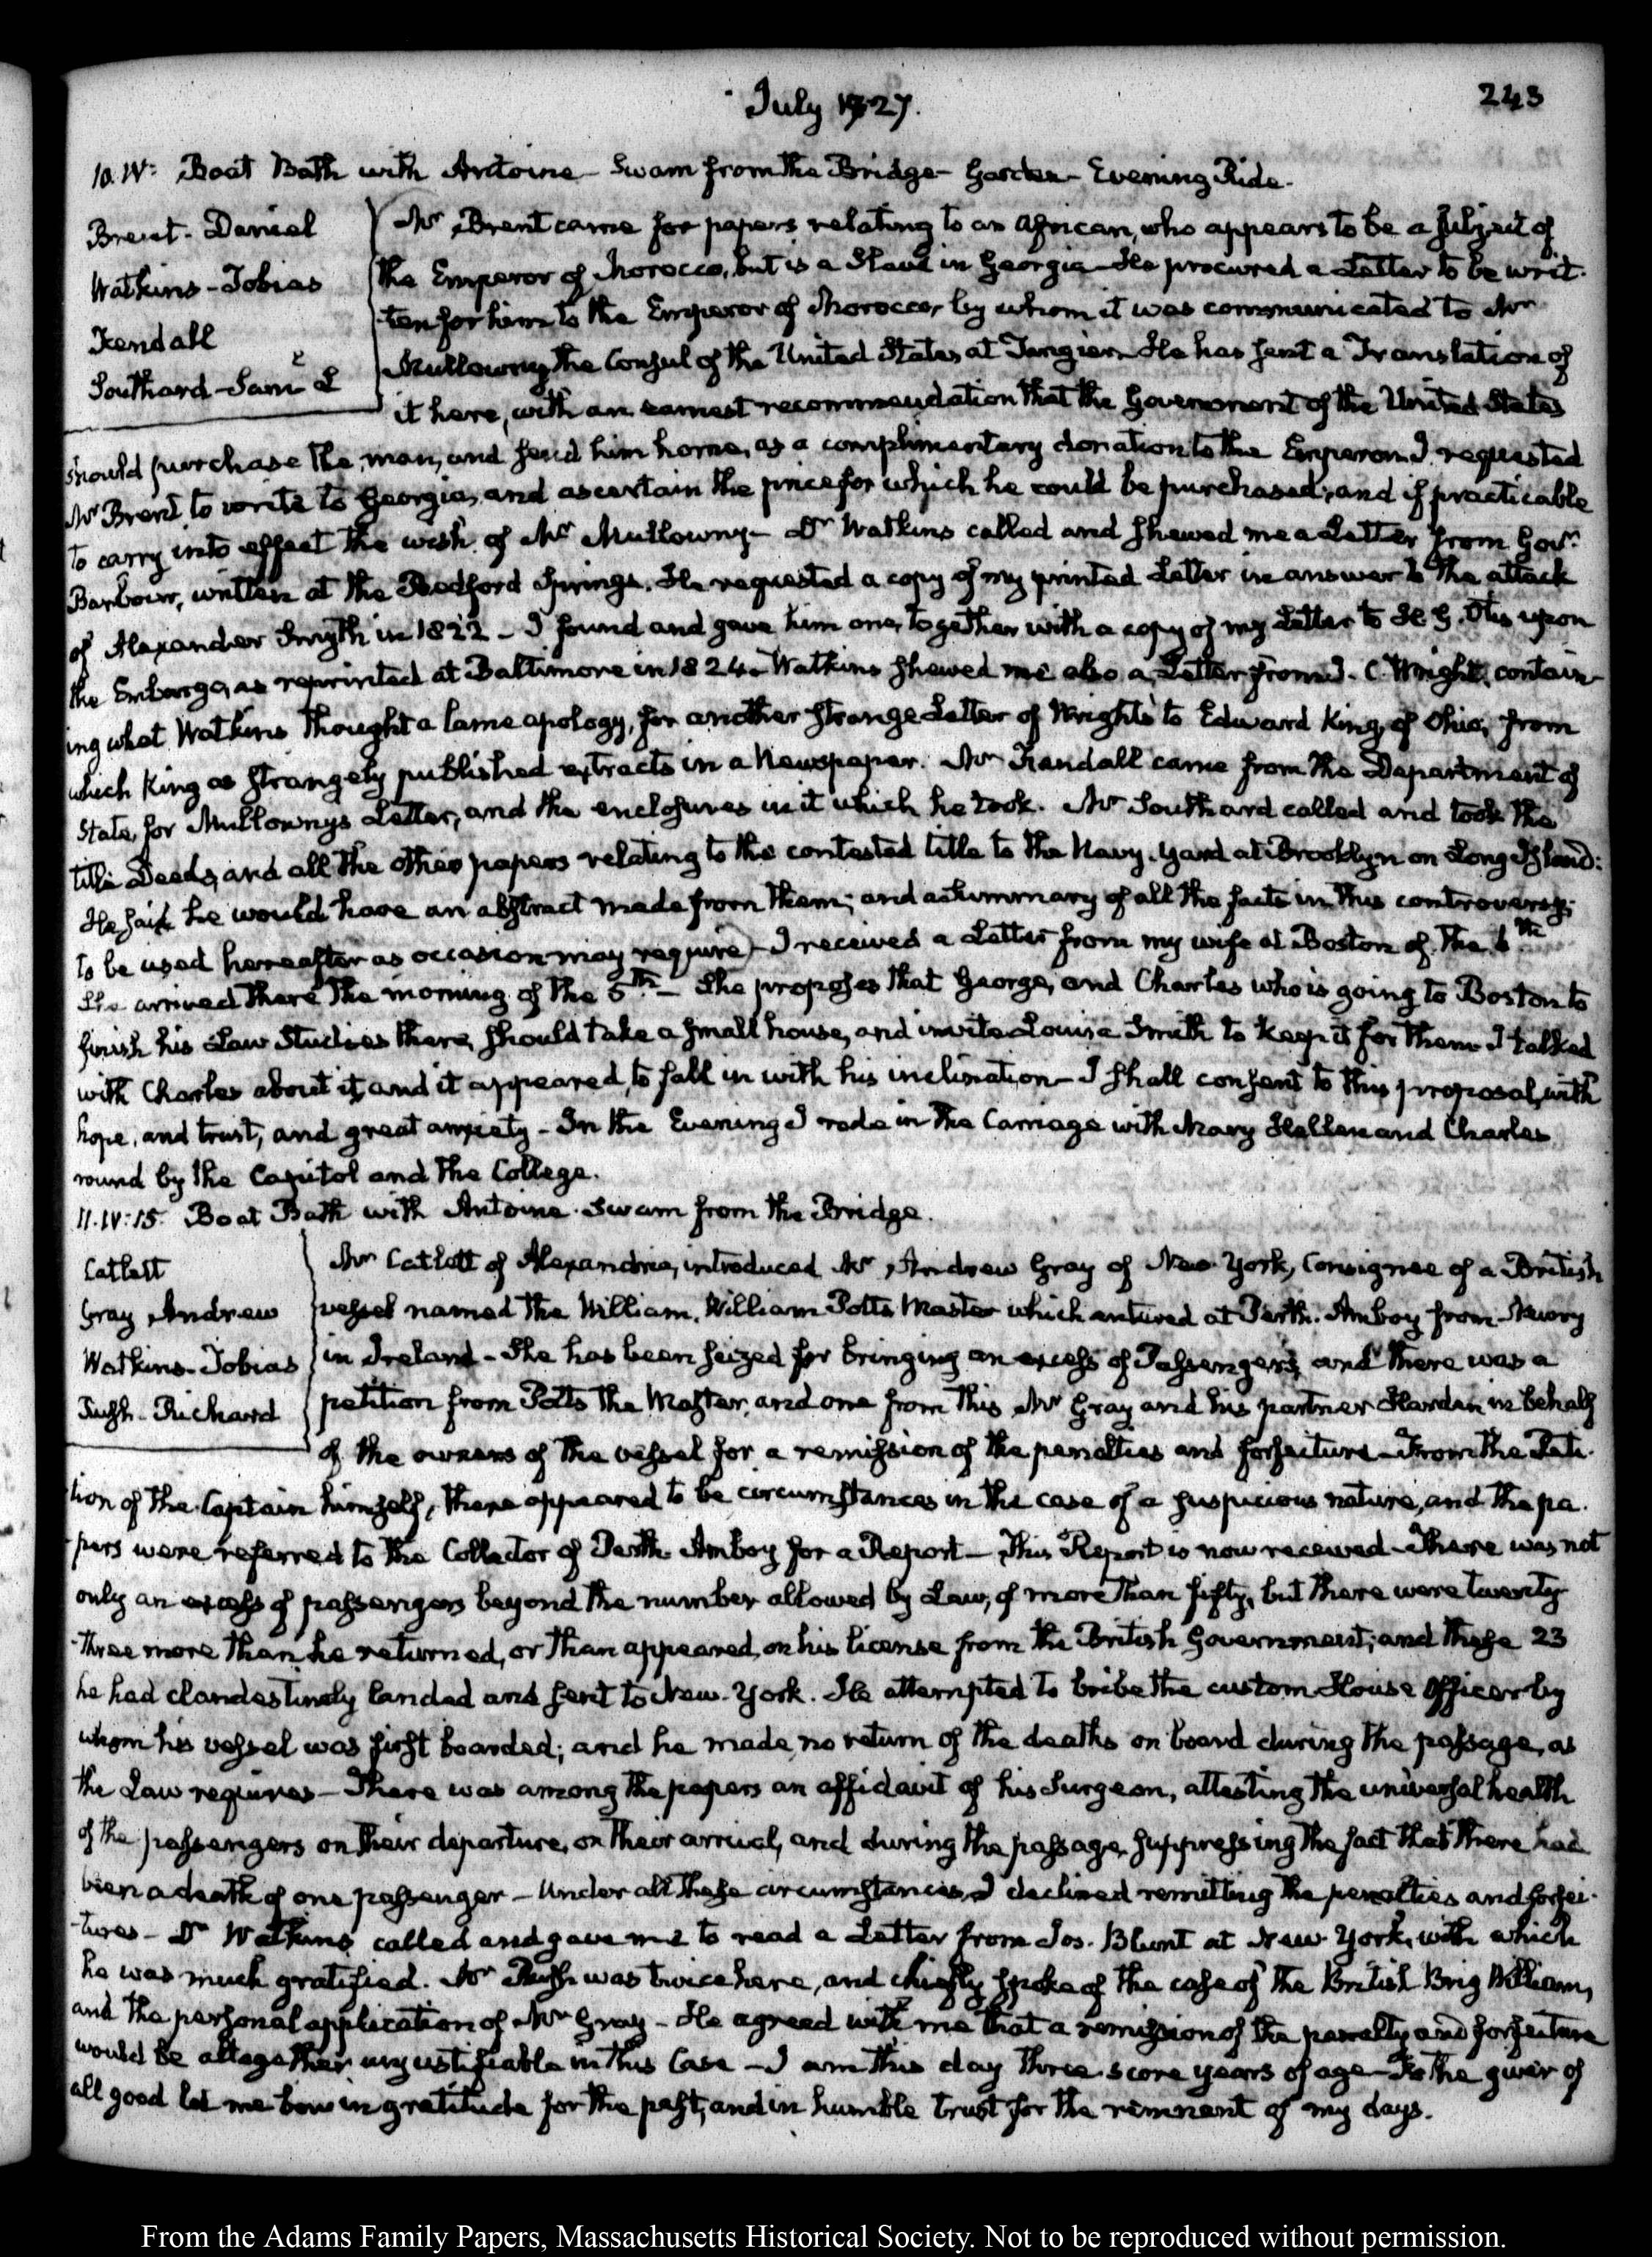 July 1827.
243
10. IV: Boat Bath with Antoine - Swam from the Bridge - Garden - Evening Ride.
Brent - Daniel
Watkins - Tobias
Kendall
Southard - Saml L
Mr Brent came for papers relating to an African, who appears to be a subject of
the Emperor of Morocco, but is a Slave in Georgia - He procured a Letter to be writ-
ten for him to the Emperor of Morocco, by whom it was communicated to Mr
Mullowny the Consul of the United States at Tangier. He has sent a Translation of
it here, with an earnest recommendation that the Government of the United States
should purchase the man, and send him home, as a complimentary donation to the Emperor. I requested
Mr Brent to write to Georgia, and ascertain the price for which he could be purchased; and if practicable
to carry into effect the wish of Mr Mullowny - Dr Watkins called and shewed me a Letter from Govr
Barbour, written at the Bedford Springs. He requested a copy of my printed Letter in answer to the attack
of Alexander Smyth in 1822 - I found and gave him one, together with a copy of my Letter to H. G. Otis upon
the Embargo, as reprinted at Baltimore in 1824. Watkins shewed me also a Letter from J. C. Wright, contain-
ing what Watkins thought a lame apology, for another strange Letter of Wright's to Edward King, of Ohio, from
which King as strangely published extracts in a Newspaper. Mr Kendall came from the Department of
State, for Mullowny's Letter, and the enclosures in it which he took. Mr Southard called and took the
title Deeds, and all the other papers relating to the contested title to the Navy-Yard at Brooklyn on Long Island:
He said he would have an abstract made from them; and a summary of all the facts in this controversy;
to be used hereafter as occasion may require - I received a Letter from my wife at Boston of the 6th
She arrived there the morning of the 5th - She proposes that George, and Charles who is going to Boston to
finish his Law Studies there, should take a small house, and invite Louisa Smith to keep it for them. I talked
with Charles about it, and it appeared to fall in with his inclination - I shall consent to this proposal, with
hope, and trust, and great anxiety - In the Evening I rode in the Carriage with Mary Hellen and Charles
round by the Capitol and the College.
11. IV: 15. Boat Bath with Antoine. Swam from the Bridge.
Catlett
Gray Andrew
Watkins - Tobias
Rush - Richard
Mr Catlett of Alexandria, introduced Mr Andrew Gray of New-York, Consignee of a British
vessel named the William, William Potts Master which entered at Perth-Amboy from Newry
in Ireland - She has been seized for bringing an excess of Passengers, and there was a
petition from Potts the Master, and one from this Mr Gray and his partner Harden in behalf
of the owners of the vessel for a remission of the penalties and forfeiture - From the Peti-
tion of the Captain himself, there appeared to be circumstances in the case of a suspicious nature, and the pa-
pers were referred to the Collector of Perth-Amboy for a Report - This Report is now received - There was not
only an excess of passengers beyond the number allowed by Law, of more than fifty, but there were twenty-
three more than he returned, or than appeared, on his license from the British Government; and these 23
he had clandestinely landed and sent to New-York. He attempted to bribe the custom-House Officer by
whom his vessel was first boarded; and he made no return of the deaths on board during the passage, as
the Law requires - There was among the papers an affidavit of his Surgeon, attesting the universal health
of the passengers on their departure, on their arrival, and during the passage, suppressing the fact that there had
been a death of one passenger - Under all these circumstances, I declined remitting the penalties and forfei-
tures - Dr Watkins called and gave me to read a Letter from Jos. Blunt at New-York, with which
he was much gratified. Mr Rush was twice here, and chiefly spoke of the case of the British Brig William,
and the personal application of Mr Gray - He agreed with me that a remission of the penalty and forfeiture
would be altogether unjustifiable in this Case - I am this day three score years of age - To the giver of
all good let me bow in gratitude for the past, and in humble trust for the remnant of my days.
From the Adams Family Papers, Massachusetts Historical Society. Not to be reproduced without permission.